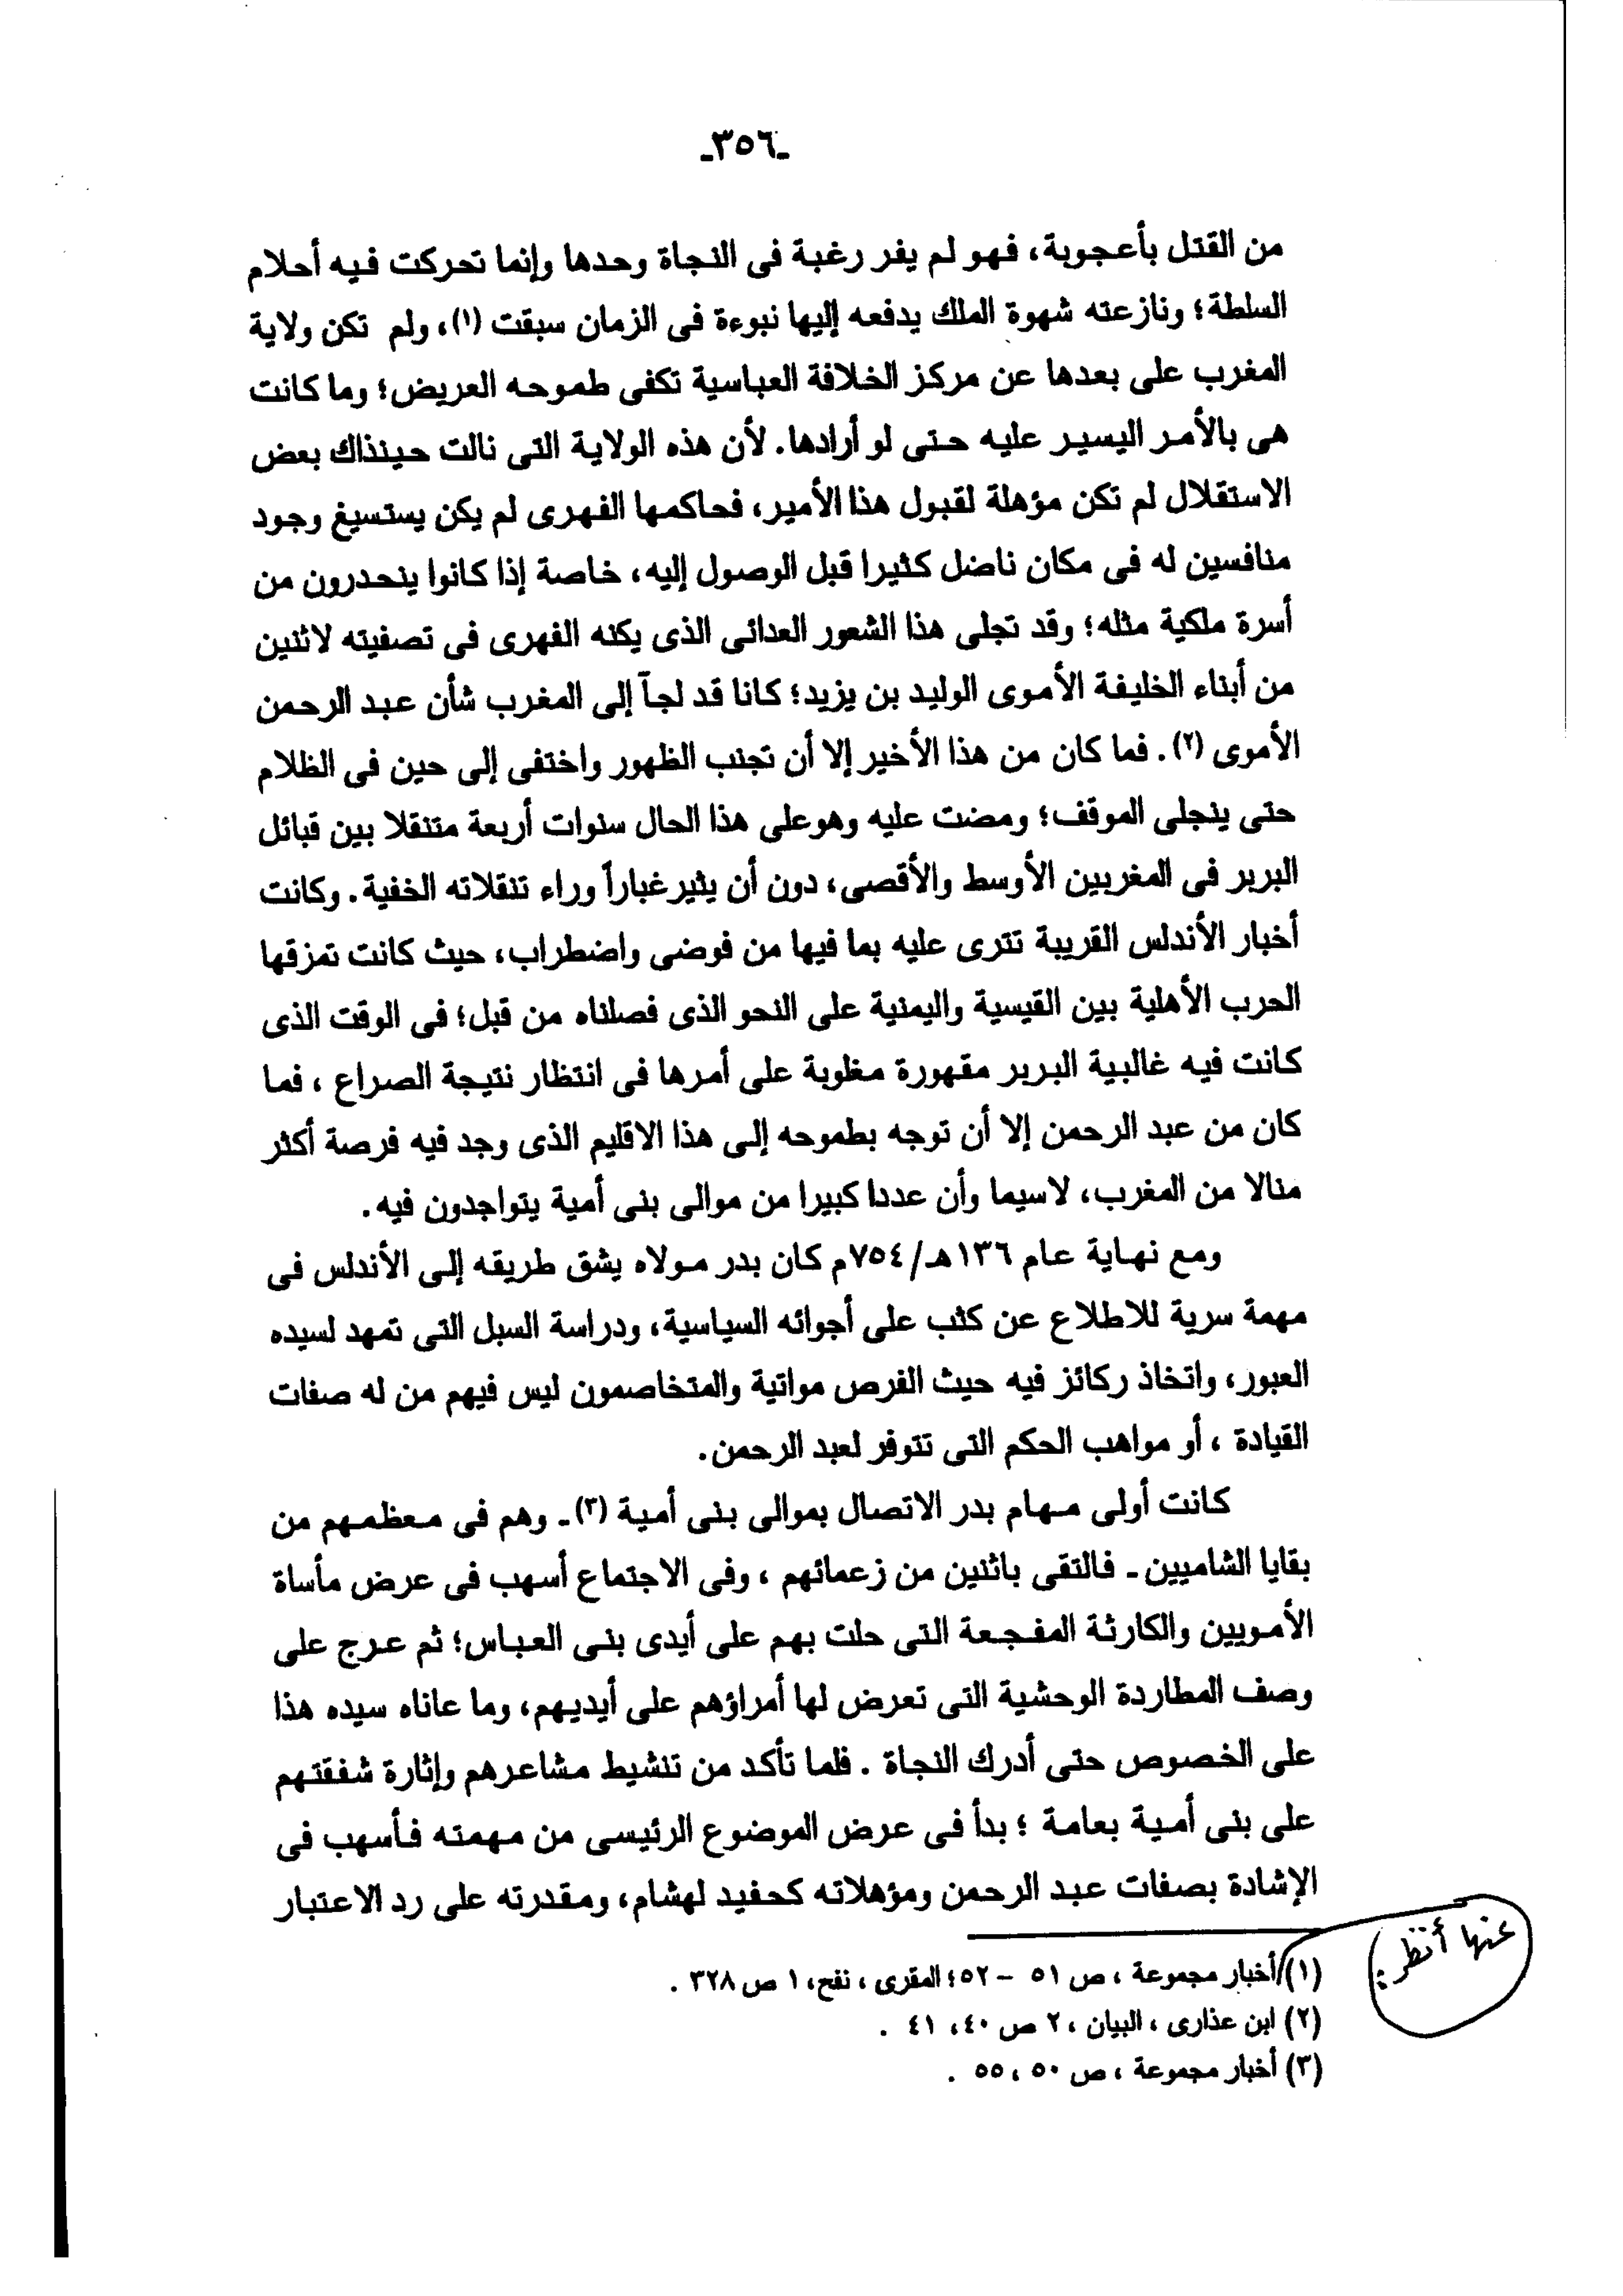 -٣٥٦-
من القتل بأعجوبة، فهو لم يفر رغبة فى النجاة وحدها وإنما تحركت فيه أحلام
السلطة؛ ونازعته شهوة الملك يدفعه إليها نبوءة فى الزمان سبقت (١)، ولم تكن ولاية
المغرب على بعدها عن مركز الخلافة العباسية تكفى طموحه العريض؛ وما كانت
هى بالأمر اليسير عليه حتى لو أرادها. لأن هذه الولاية التى نالت حينذاك بعض
الاستقلال لم تكن مؤهلة لقبول هذا الأمير، فحاكمها الفهرى لم يكن يستسيغ وجود
منافسين له فى مكان ناضل كثيرا قبل الوصول إليه، خاصة إذا كانوا ينحدرون من
أسرة ملكية مثله؛ وقد تجلى هذا الشعور العدائى الذى يكنه الفهرى فى تصفيته لاثنين
من أبناء الخليفة الأموى الوليد بن يزيد؛ كانا قد لجآ إلى المغرب شأن عبد الرحمن
الأموى (٢). فما كان من هذا الأخير إلا أن تجنب الظهور واختفى إلى حين فى الظلام
حتى ينجلى الموقف؛ ومضت عليه وهوعلى هذا الحال سنوات أربعة متنقلا بين قبائل
البربر فى المغربين الأوسط والأقصى، دون أن يثير غباراً وراء تنقلاته الخفية. وكانت
أخبار الأندلس القريبة تترى عليه بما فيها من فوضى واضطراب، حيث كانت تمزقها
الحرب الأهلية بين القيسية واليمنية على النحو الذى فصلناه من قبل؛ فى الوقت الذى
كانت فيه غالبية البربر مقهورة مغلوبة على أمرها فى انتظار نتيجة الصراع ، فما
كان من عبد الرحمن إلا أن توجه بطموحه إلى هذا الاقليم الذى وجد فيه فرصة أكثر
منالا من المغرب، لاسيما وأن عددا كبيرا من موالى بنى أمية يتواجدون فيه.
ومع نهاية عام ١٣٦هـ/٧٥٤م كان بدر مولاه يشق طريقه إلى الأندلس فى
مهمة سرية للاطلاع عن كثب على أجوائه السياسية، ودراسة السبل التى تمهد لسيده
العبور، واتخاذ ركائز فيه حيث الفرص مواتية والمتخاصمون ليس فيهم من له صفات
القيادة ، أو مواهب الحكم التى تتوفر لعبد الرحمن.
كانت أولى مهام بدر الاتصال بموالى بنى أمية (٣)- وهم فى معظمهم من
بقايا الشاميين - فالتقى باثنين من زعمائهم ، وفى الاجتماع أسهب فى عرض مأساة
الأمويين والكارثة المفجعة التى حلت بهم على أيدى بنى العباس؛ ثم عرج على
وصف المطاردة الوحشية التى تعرض لها أمراؤهم على أيديهم، وما عاناه سيده هذا
على الخصوص حتى أدرك النجاة . فلما تأكد من تنشيط مشاعرهم وإثارة شفقتهم
على بنى أمية بعامة ؛ بدأ فى عرض الموضوع الرئيسى من مهمته فأسهب فى
الإشادة بصفات عبد الرحمن ومؤهلاته كحفيد لهشام، ومقدرته على رد الاعتبار
عنها أنظر:
(١) أخبار مجموعة ، ص ٥١ – ٥٢؛ المقرى ، نفح، ١ ص ٣٢٨ .
(٢) ابن عذارى ، البيان ، ٢ ص ٤٠، ٤١ .
(٣) أخبار مجموعة ، ص ٥٠ ، ٥٥ .